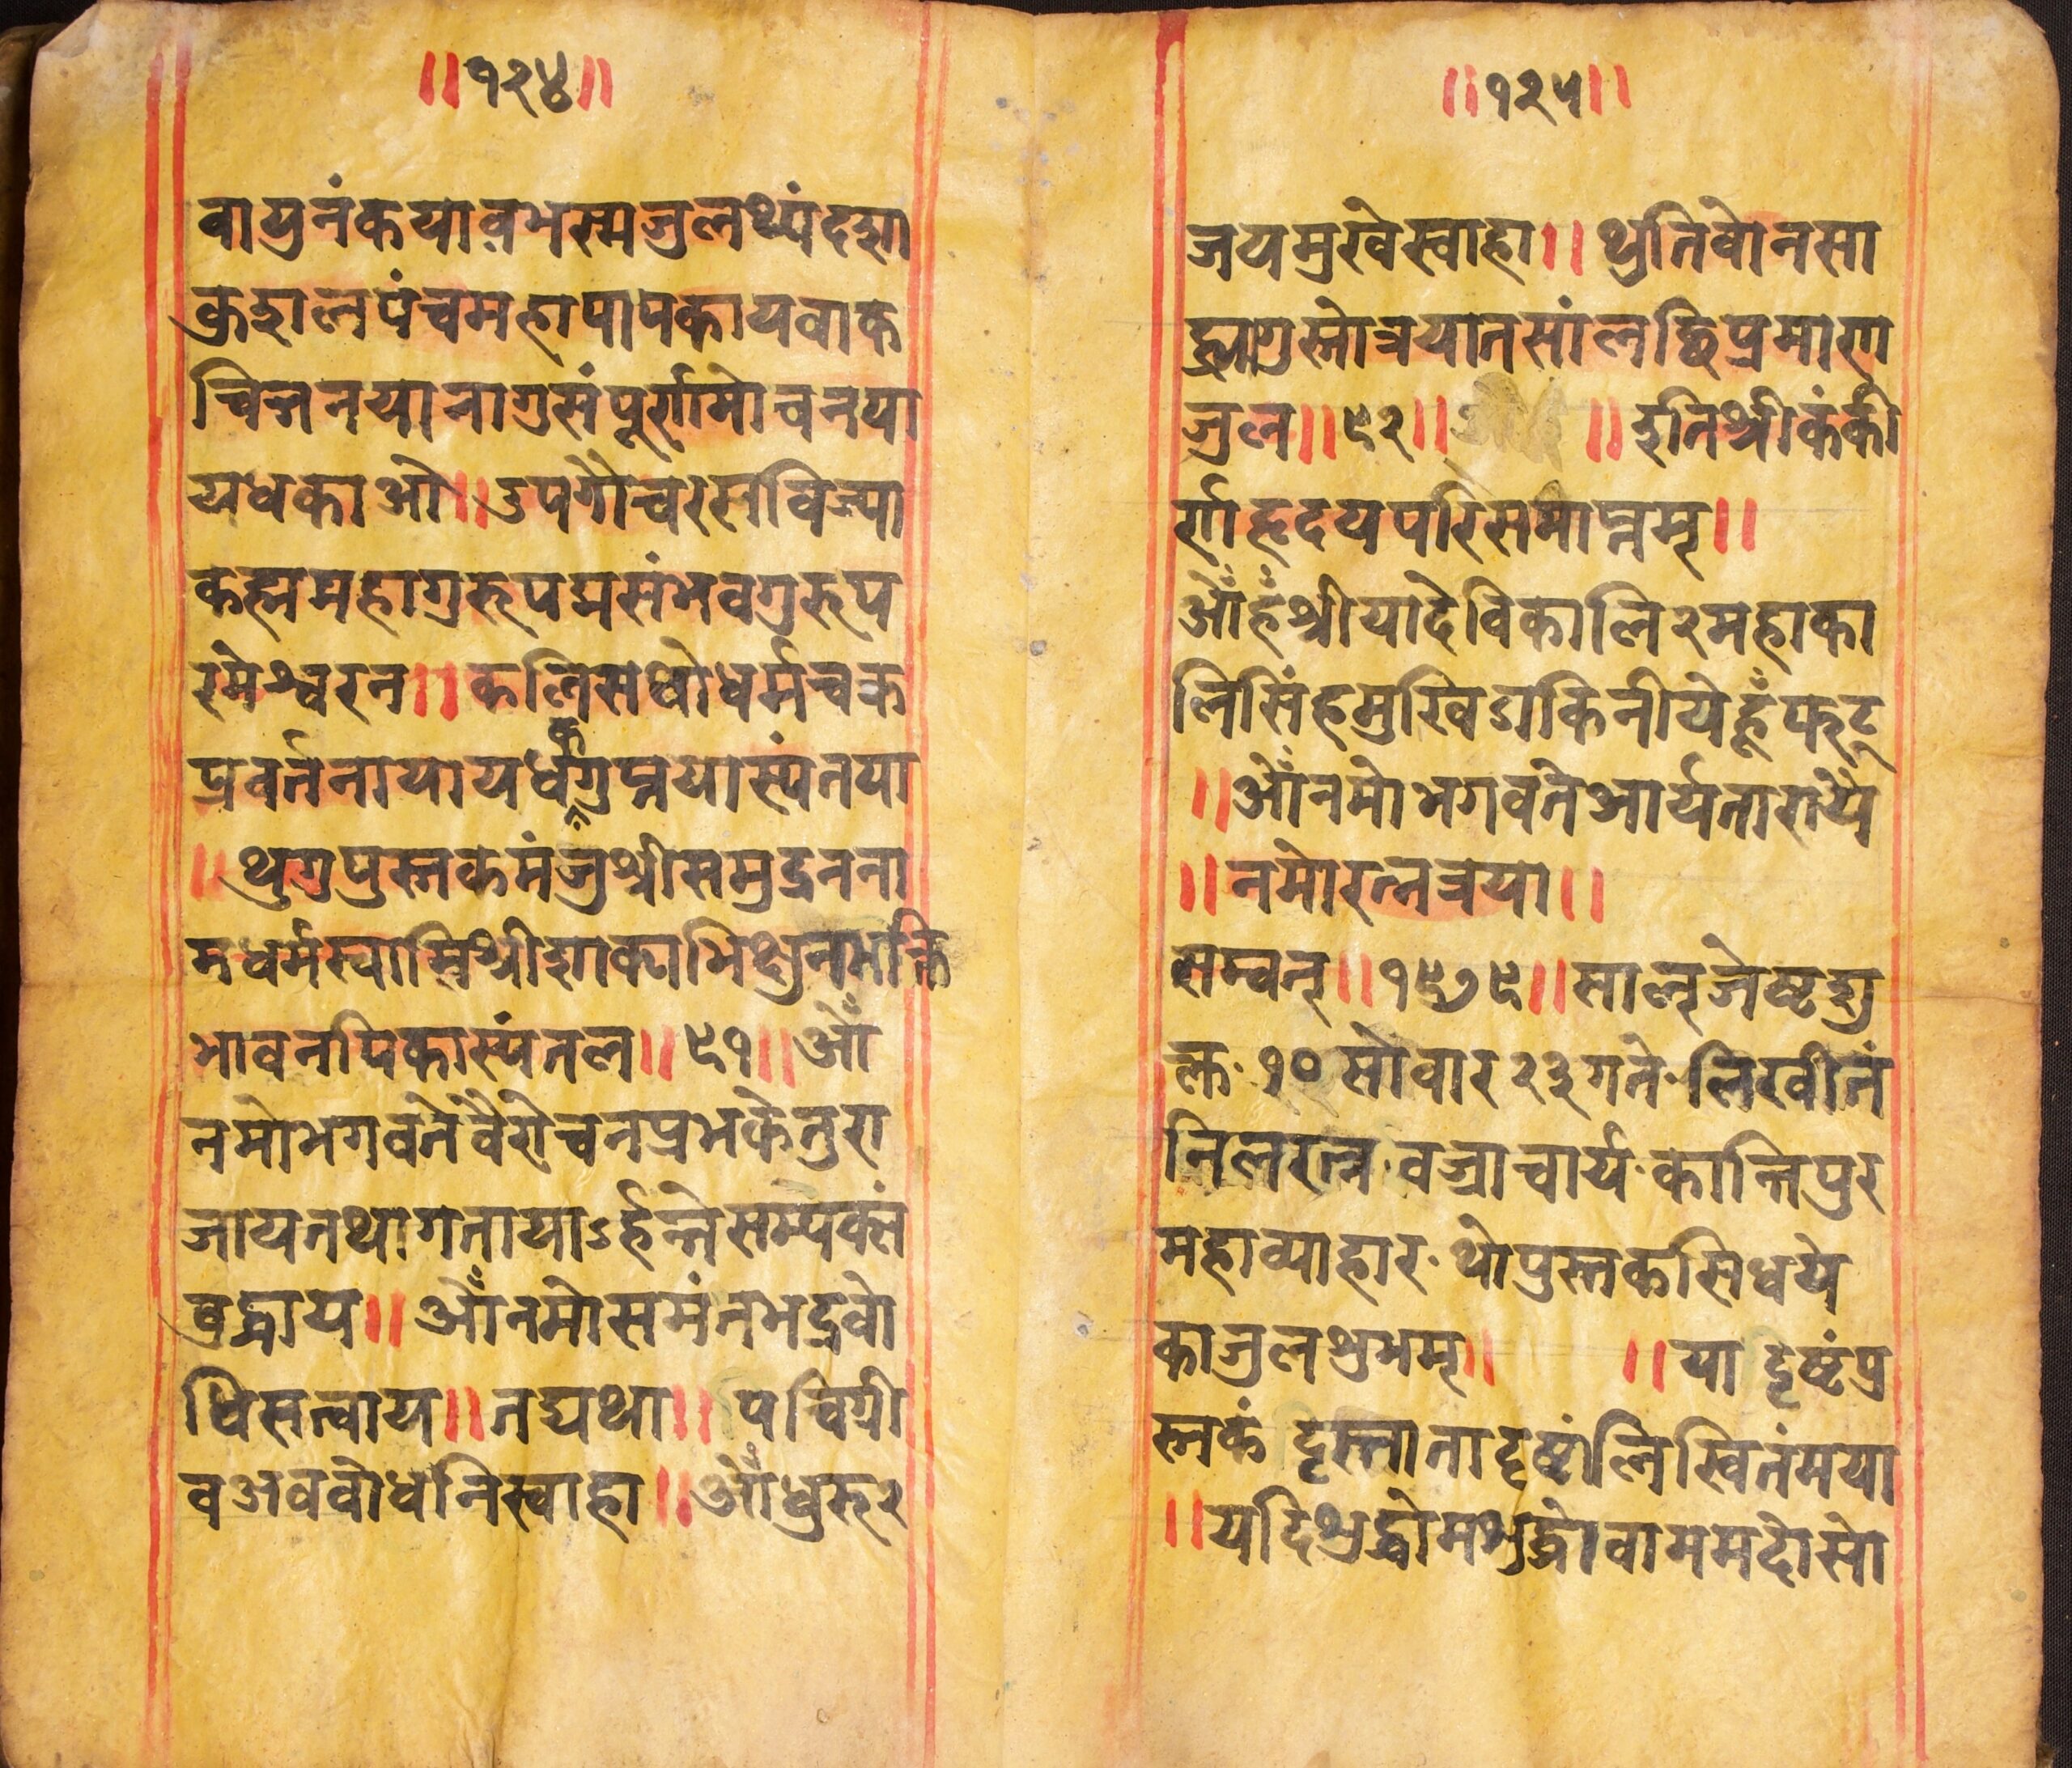 ॥१२४॥
वायुनंकयाव़भस्मजुलथ्यंदक्षा
क्रुशलपंचमहापापकायवाक
चित्तनयानागुसंपूर्णमोचनया
यधकाओ॥उपगौचरसविज्या
कह्ममहागुरूपद्मसंभवगुरूप
रमेश्वरन॥कलिसथोधर्मचक्र
प्रवर्तनायायर्धकगुप्तयास्यंतया
॥थुगुपुस्तकमंजुश्रीसमुद्रनना
मधर्मस्वामिश्रीशाकाभिक्षुनभक्ति
भावनपिकास्यंतल॥९१॥ओँ
नमोभगवतेवैरोचनप्रभकेतुरा
जायतथागतायाऽर्हन्तेसम्येक्सं
बुद्धाय॥ओँनमोसमंतभद्रवो
धिसत्वाय॥तद्यथा॥पचिग्री
वअववोधनिस्वाहा॥ओँधुरू२
॥१२५॥
जयमुखेस्वाहा॥थुतिवोनसा
ह्लागुस्तोत्रयातसांलछिप्रमाण
जुल॥९२॥ ॥इतिश्रीकंकी
र्णहृदयपरिसमाप्तम्॥
ओँहँश्रीयादेविकालि२महाका
लिसिंहमुखिडाकिनीयेहूँफट्
॥ओँनमोभगवतेआर्यतारायै
॥नमोरत्नत्रया॥
सम्वत्॥१९७९॥साल्जेष्टशु
क्ल·१०सोवार२३गते·लिखीतं
निलरत्न·वज्राचार्य·कान्तिपुर
महाव्याहार·थोपुस्तकसिधये
काजुलशुभम्॥ ॥यादृष्टंपु
स्तकंदृस्तातादृष्टांलिखितंमया
॥यदिशुद्धोमशुद्धोवाममदोसो